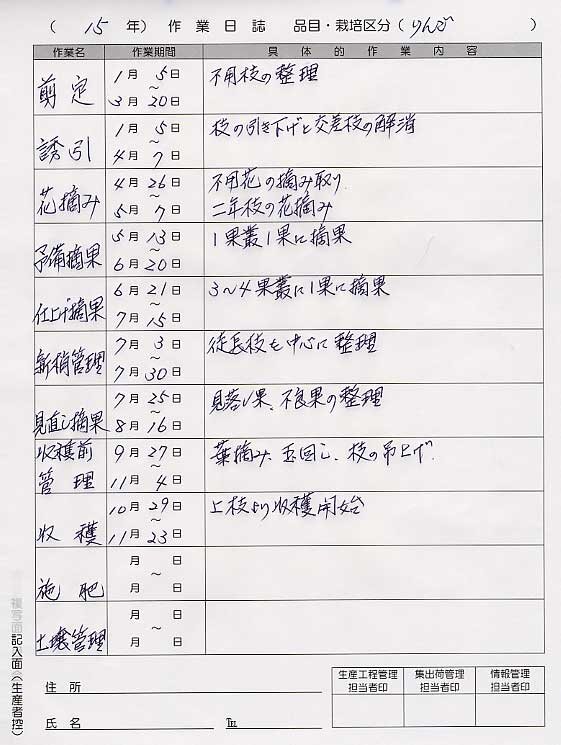 （ 15 年）作業日誌 品目・栽培区分（りんご ）
作業名 作業期間 具体的作業内容
剪定 1月5日～3月20日 不用枝の整理
誘引 1月5日～4月7日 枝の引き下げと交差枝の解消
花摘み 4月26日～5月7日 不用花の摘み取り
二年枝の花摘み
予備摘果 5月13日～6月20日 1果叢1果に摘果
仕上げ摘果 6月21日～7月15日 3～4果叢に1果に摘果
新梢管理 7月3日～7月30日 徒長枝を中心に整理
見直し摘果 7月25日～8月16日 見落し果、不良果の整理
収穫前
管理 9月27日～11月4日 葉摘み、玉回し、枝の吊上げ
収穫 10月29日～11月23日 上枝より収穫開始
施肥 月 日～ 月 日
土壌管理 月 日～ 月 日
複写面記入面（生産者控）
住所
氏名 ℡
生産工程管理
担当者印
集出荷管理
担当者印
情報管理
担当者印